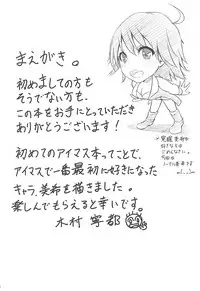 まえがき。
初めましての方も
そうでない方も、
この本をお手にとっていただき
ありがとうございます！
初めてのアイマス本ってことで、
アイマスで一番最初に好きになった
キャラ、美希を描きました。
楽しんでもらえると幸いです。
木村寧都
覚醒美希が
好きな方は
ごめんなさい。